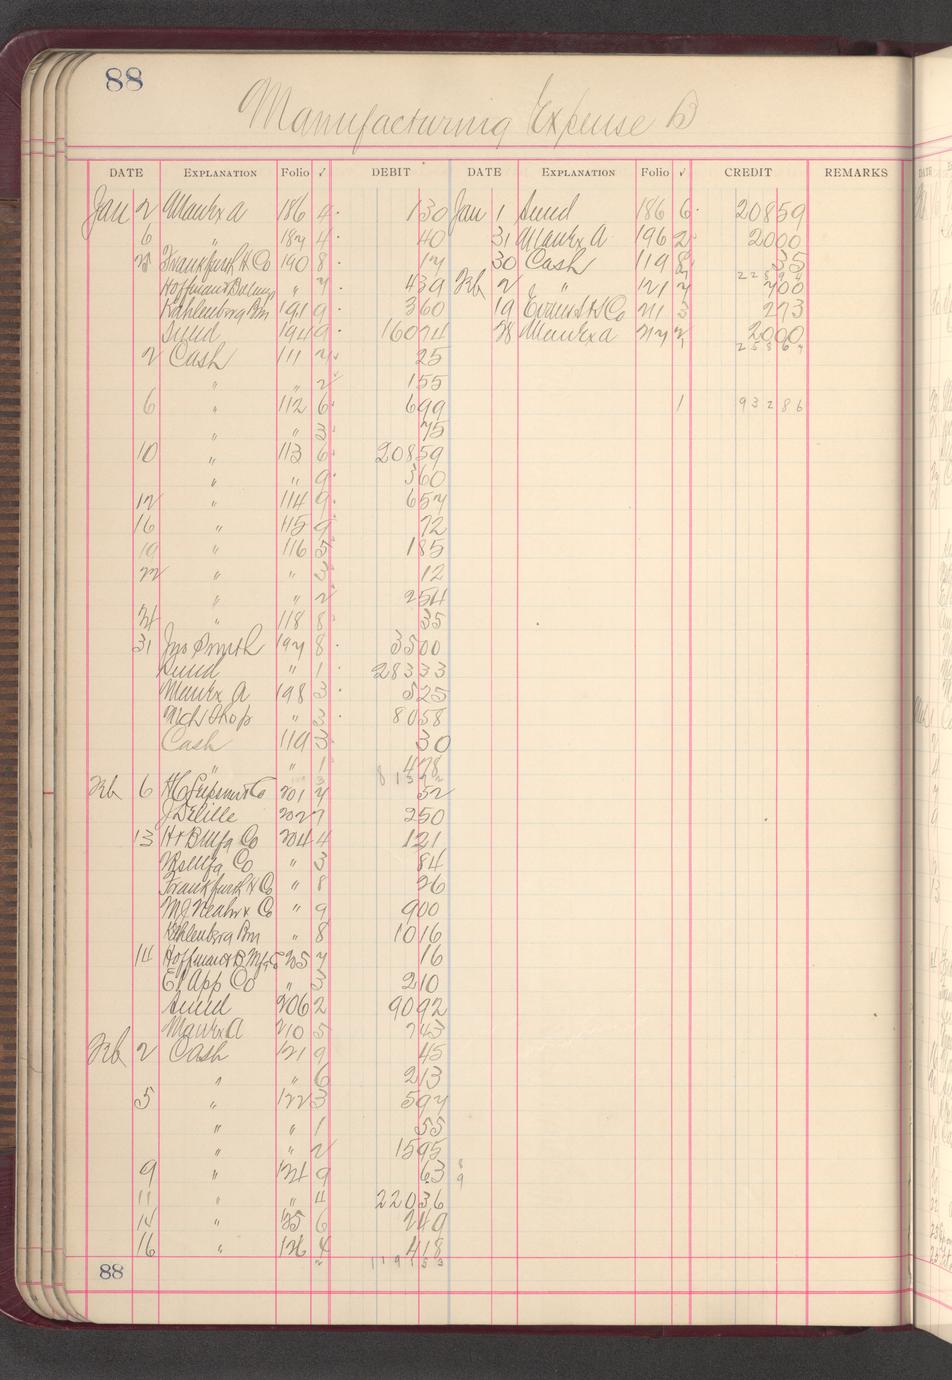 88
Manufacturing Expense B
DATE EXPLANATION Folio √ DEBIT DATE EXPLANATION Folio √ CREDIT REMARKS
Jan 2 Manfx A 186 4 130 Jan 1 Sund 186 6 20859
6 " 187 4 40 31 Manfx A 196 2 2000
25 Frankfurth H Co 190 8 17 30 Cash 119 8 35
22894
Hoffman & Billings " 7 439 Feb 2 " 121 7 700
Kahlenberg Bro 191 9 360 19 Evans & Co 211 3 273
Sund 194 9 16074 28 Manfx A 217 2 2000
1 25867
2 Cash 111 2 25
" " 2 155
6 " 112 6 699 1 93286
" " 3 75
10 " 113 6 20859
" " 9 360
12 " 114 9 657
16 " 115 9 72
19 " 116 5 185
22 " " 3 12
" " 2 254
24 " 118 8 35
31 Jno Smith 197 8 3500
Sund " 1 28333
Manfx A 198 3 525
Mch Shop " 3 8058
Cash 119 3 30
" " 1 478
Feb 6 201 7 52
J Delille 202 7 250
13 H & B Mfg Co 204 4 121
Mfg Co " 3 84
Frankfurth H Co " 8 26
" 9 900
Kahlenberg Bro " 8 1016
14 Hoffman & B Mfg Co 205 7 16
El App Co " 3 210
Sund 206 2 9092
Manfx A 210 5 743
Feb 2 Cash 121 9 45
" " 6 213
5 " 122 3 597
" " 1 55
" " 2 1595
9 " 124 9 63 8
9
11 " " 4 22036
14 " 125 6 249
16 " 126 4 418
2 119153
88